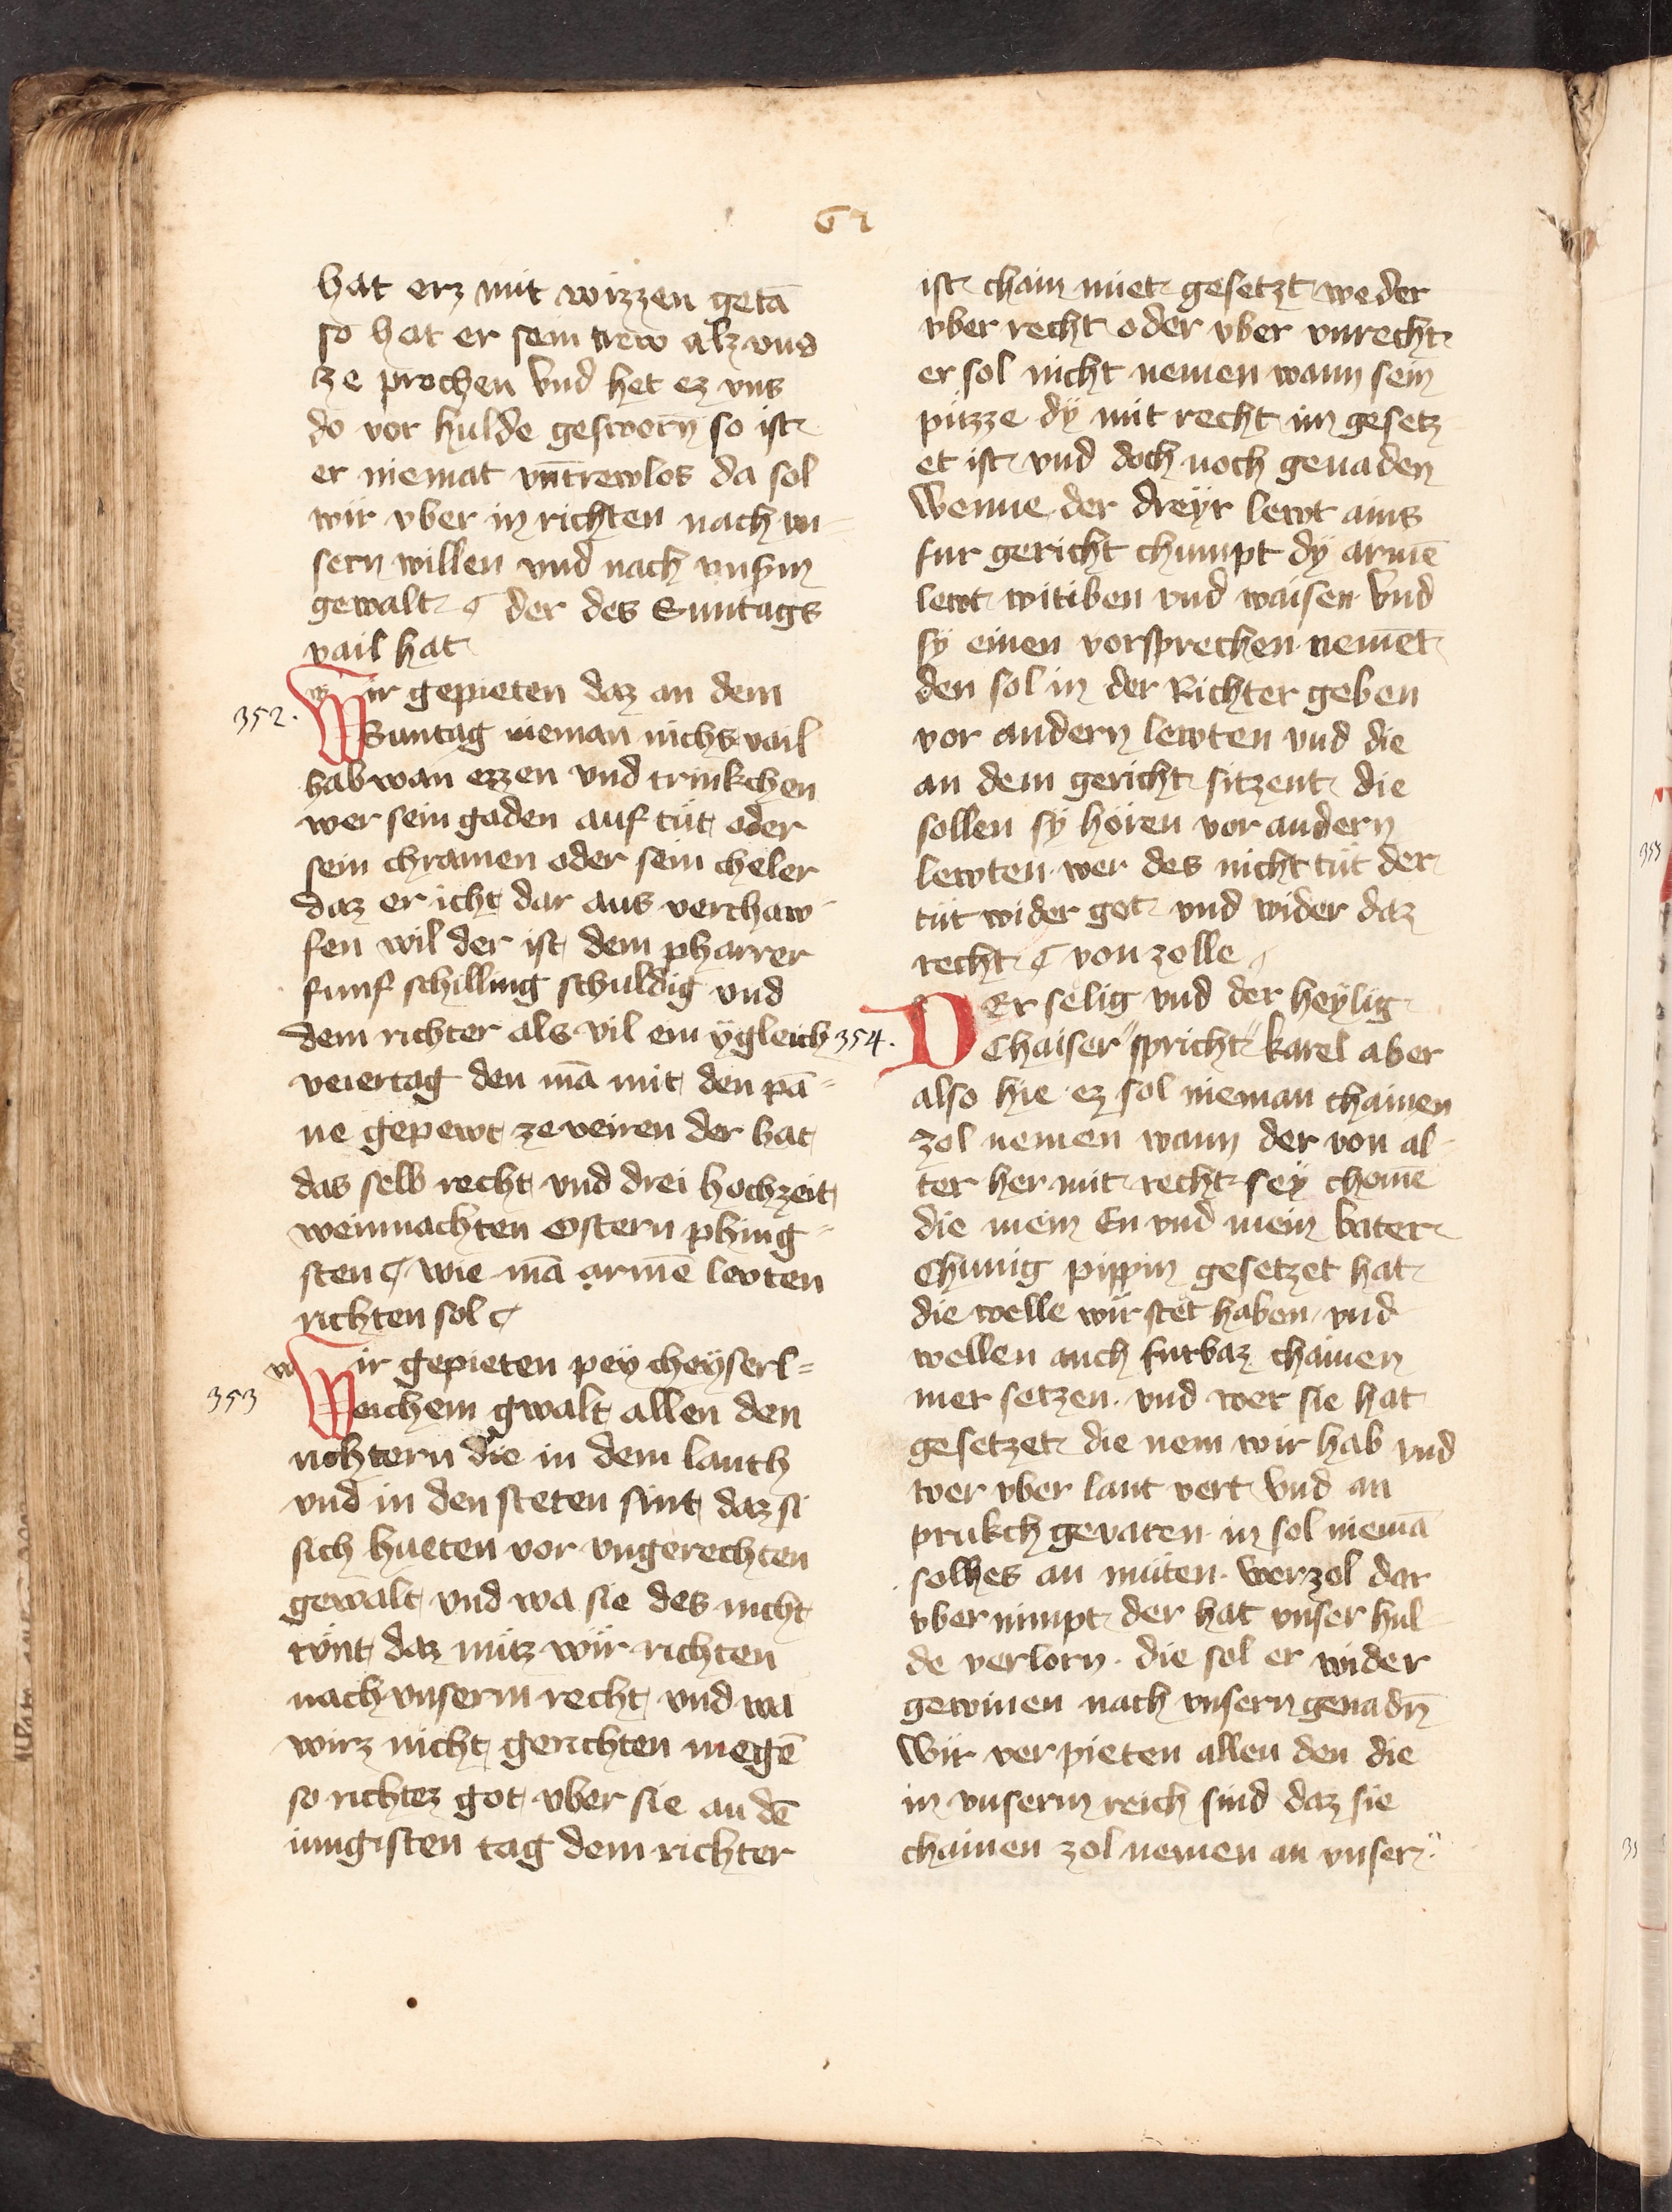 62
hat erz mit wizzen getā
so hat er sein trew alz vns
ze prochen Vnd het ez vns
do vor hulde gesworn so ist
er niemat vntrewlos da sol
wir vber in richten nach vn=
sern willen vnd nach vnsm
gewalt ¶ der des Suntags
vail hat
352. Wir gepieten daz an dem
Suntag nieman nichs vail
hab wan ezzen vnd trinkchen
wer sein gaden auf tüt oder
sein chramen oder sein cheler
daz er icht dar aus verchaw=
fen wil der ist dem pharrer
funf schilling schuldig vnd
dem richter als vil ein ÿgleich
veiertag den mā mit den pā=
ne gepewt ze veiren der hat
das selb recht vnd drei hochzeit
weinnachten Ostern phing=
sten ¶ wie mā armē levten
richten sol ¶
353 Wir gepieten peÿ cheÿserl=
eichem gwalt allen den
richtern die in dem lanth
vnd in den steten sint daz si
sich hueten vor vngerechten
gewalt vnd wa sie des nicht
tünt daz müz wir richten
nach vnserm recht vnd wa
wirz nicht gerichten megē
so richtez got vber sie an dē
iungisten tag dem richter
ist chain miet gesetzt weder
vber recht oder vber vnrecht
er sol nicht nemen wann sein
püzze dÿ mit recht im gesetz
et ist vnd doch noch genaden
Wenne der dreÿr lewt ains
fur gericht chumpt dÿ armē
lewt witiben vnd waisen Vnd
sÿ einen vorsprechen nemēt
den sol in der Richter geben
vor andern lewten vnd die
an dem gericht sitzent die
sollen sÿ hören vor andern
lewten wer des nicht tüt der
tüt wider got vnd wider daz
recht ¶ von zolle
354. DEr selig vnd der heÿlig
Chaiser "spricht" karel aber
also hie ez sol nieman chainen
zol nemen wann der von al
ter her mit recht seÿ chomē
die mein En vnd mein vater
Chunig pippin gesetzet hat
die welle wir stet haben vnd
wellen auch furbaz chainen
mer setzen. vnd wer sie hat
gesetzet die nem wir hab vnd
wer vber lant vert Vnd an
prukch gevaren in sol niemā
solhes an müten. wer zol dar
vber nimpt der hat vnser hul
de verlorn. die sol er wider
gewinen nach vnsern genadn̄
Wir verpieten allen den die
in vnserm reich sind daz sie
chainen zol nemen an vnser